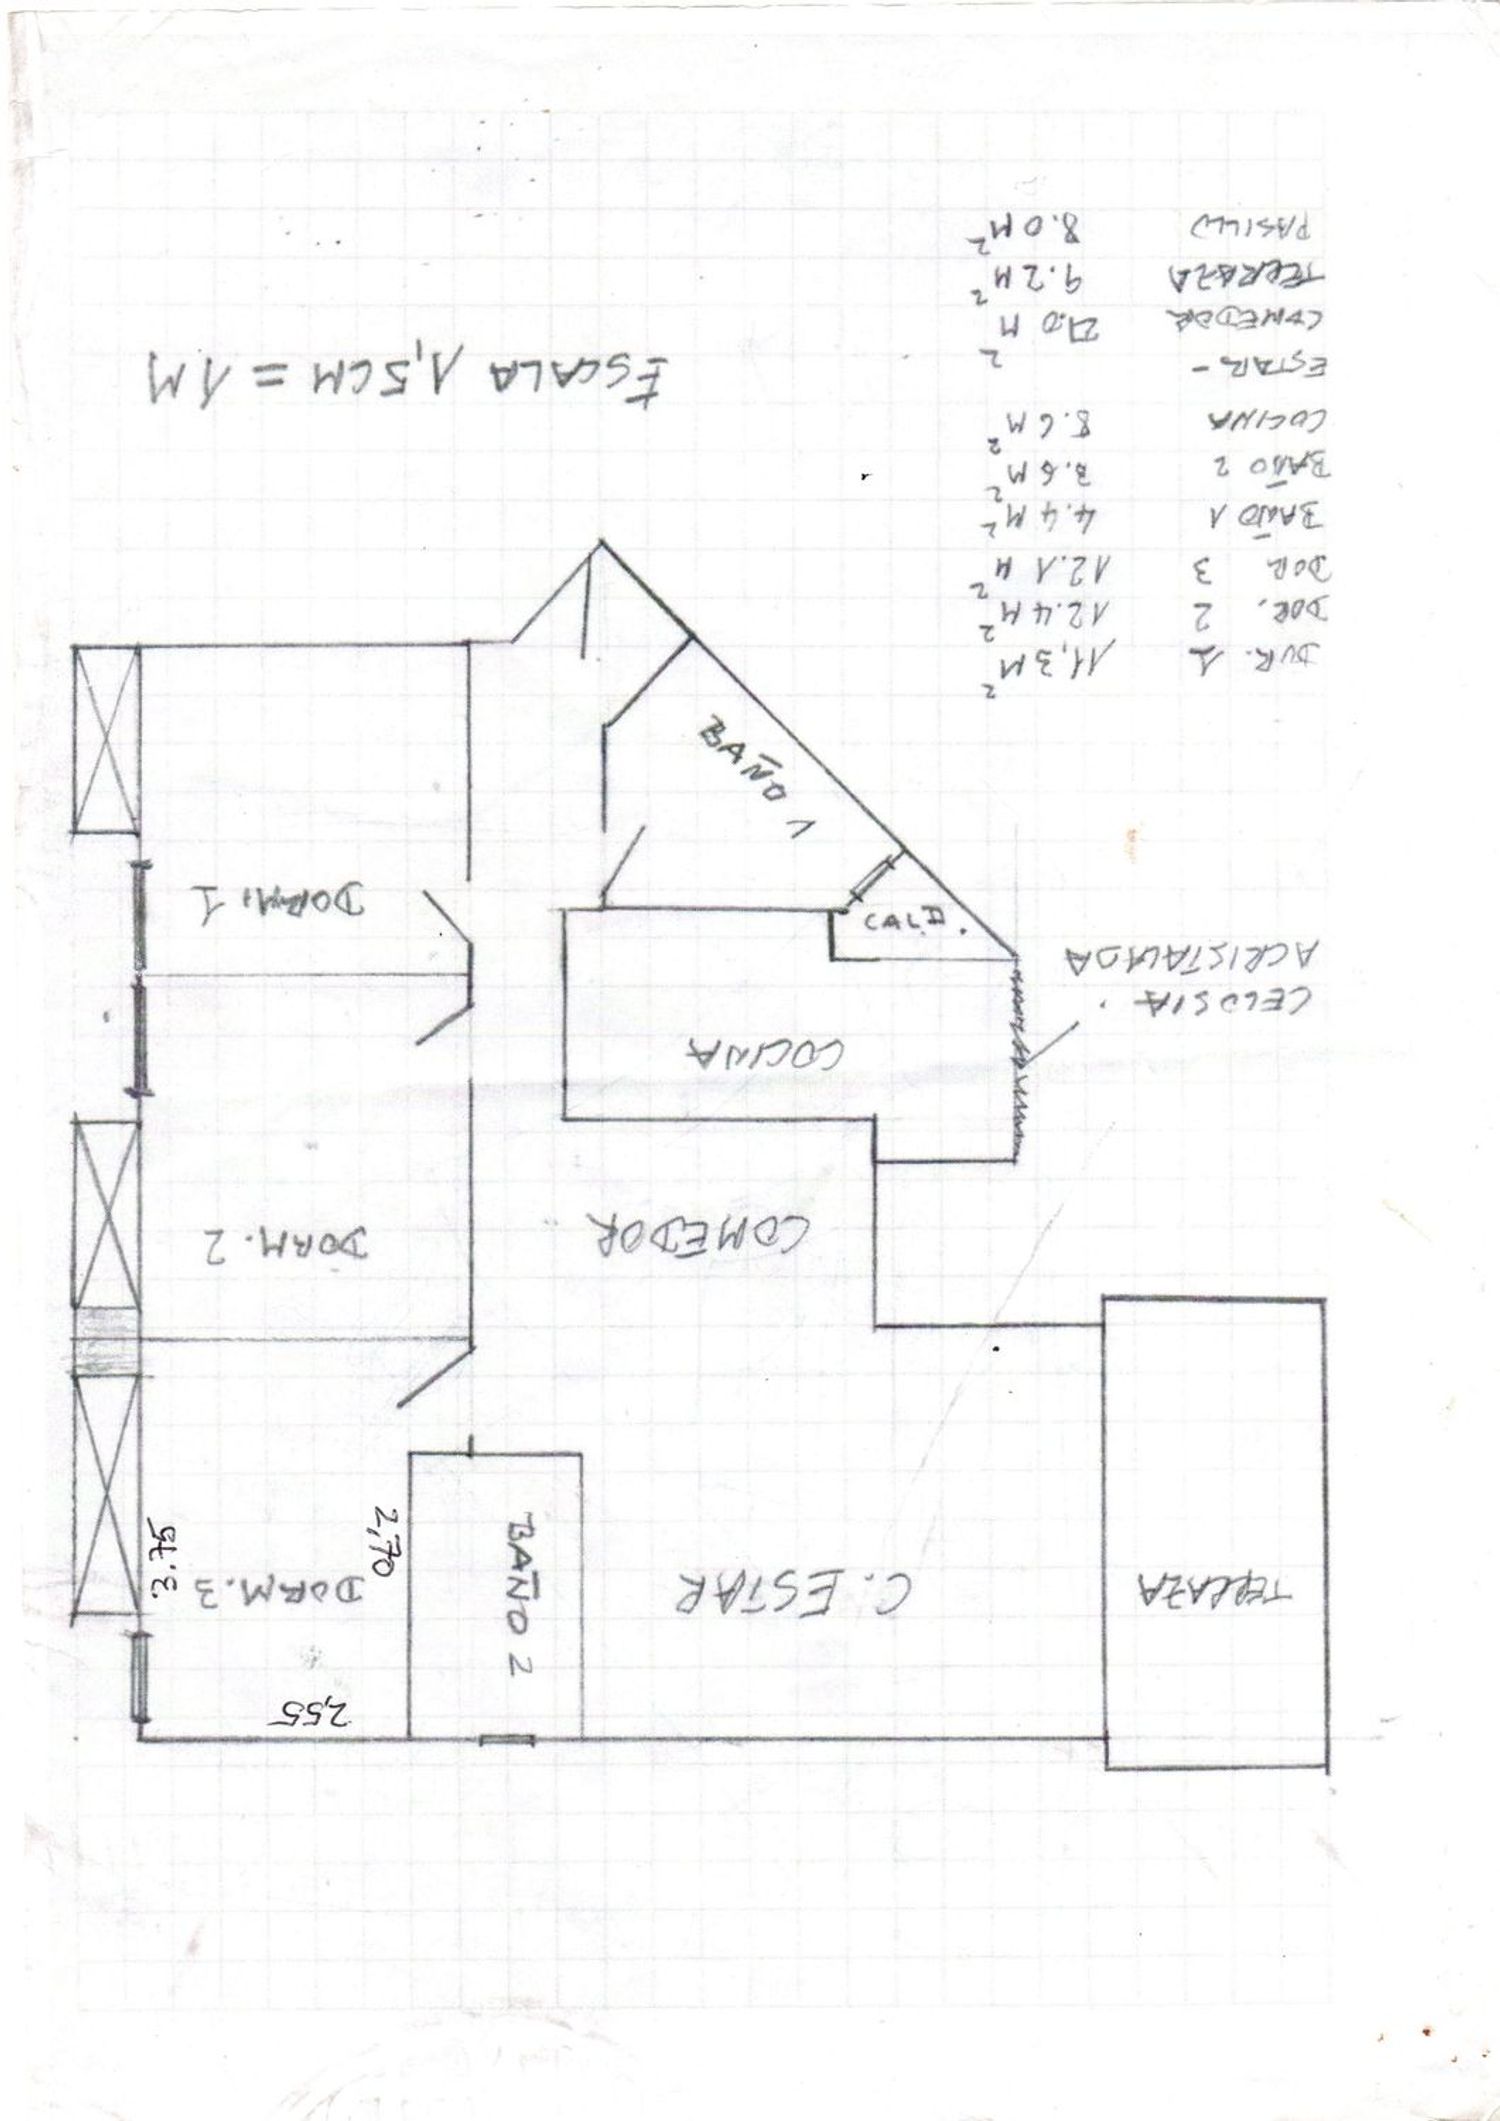 2,55
TERRAZA
C. ESTAR
BAÑO 2
2,70
DORM. 3
3.75
COMEDOR
DORM. 2
COCINA
CELOSIA
ACRISTALADA
CALD.
DORM. 1
BAÑO 1
DOR. 1 11,3 M²
DOR. 2 12.4 M²
DOR 3 12.1 M²
BAÑO 1 4.4 M²
BAÑO 2 3.6 M²
COCINA 8.6 M²
ESTAR -
COMEDOR 27.0 M²
TERRAZA 9.2 M²
PASILLO 8.0 M²
ESCALA 1,5 CM = 1 M